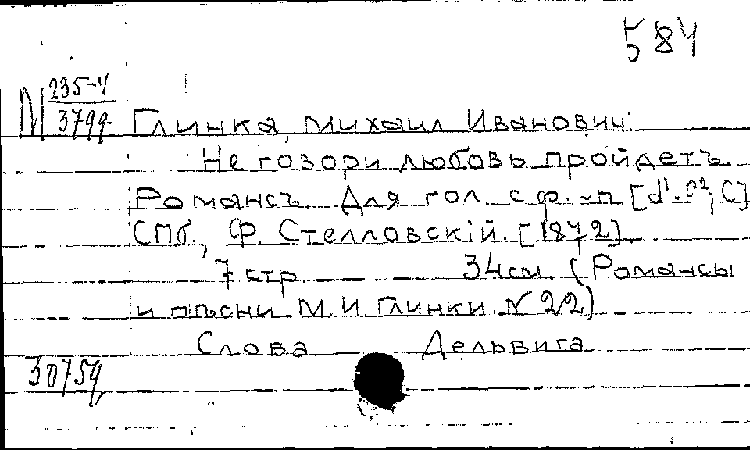 584
М 235-4
3799
Глинка, Михаил Иванович.
Не говори любовь пройдетъ
Романсъ. Для гол. с ф.-п. [d¹-e², C]
СПб., Ф. Стелловскій. [1872]
7 стр. 34 см. (Романсы
и пѣсни М. И. Глинки. № 22)
Слова Дельвига
30759